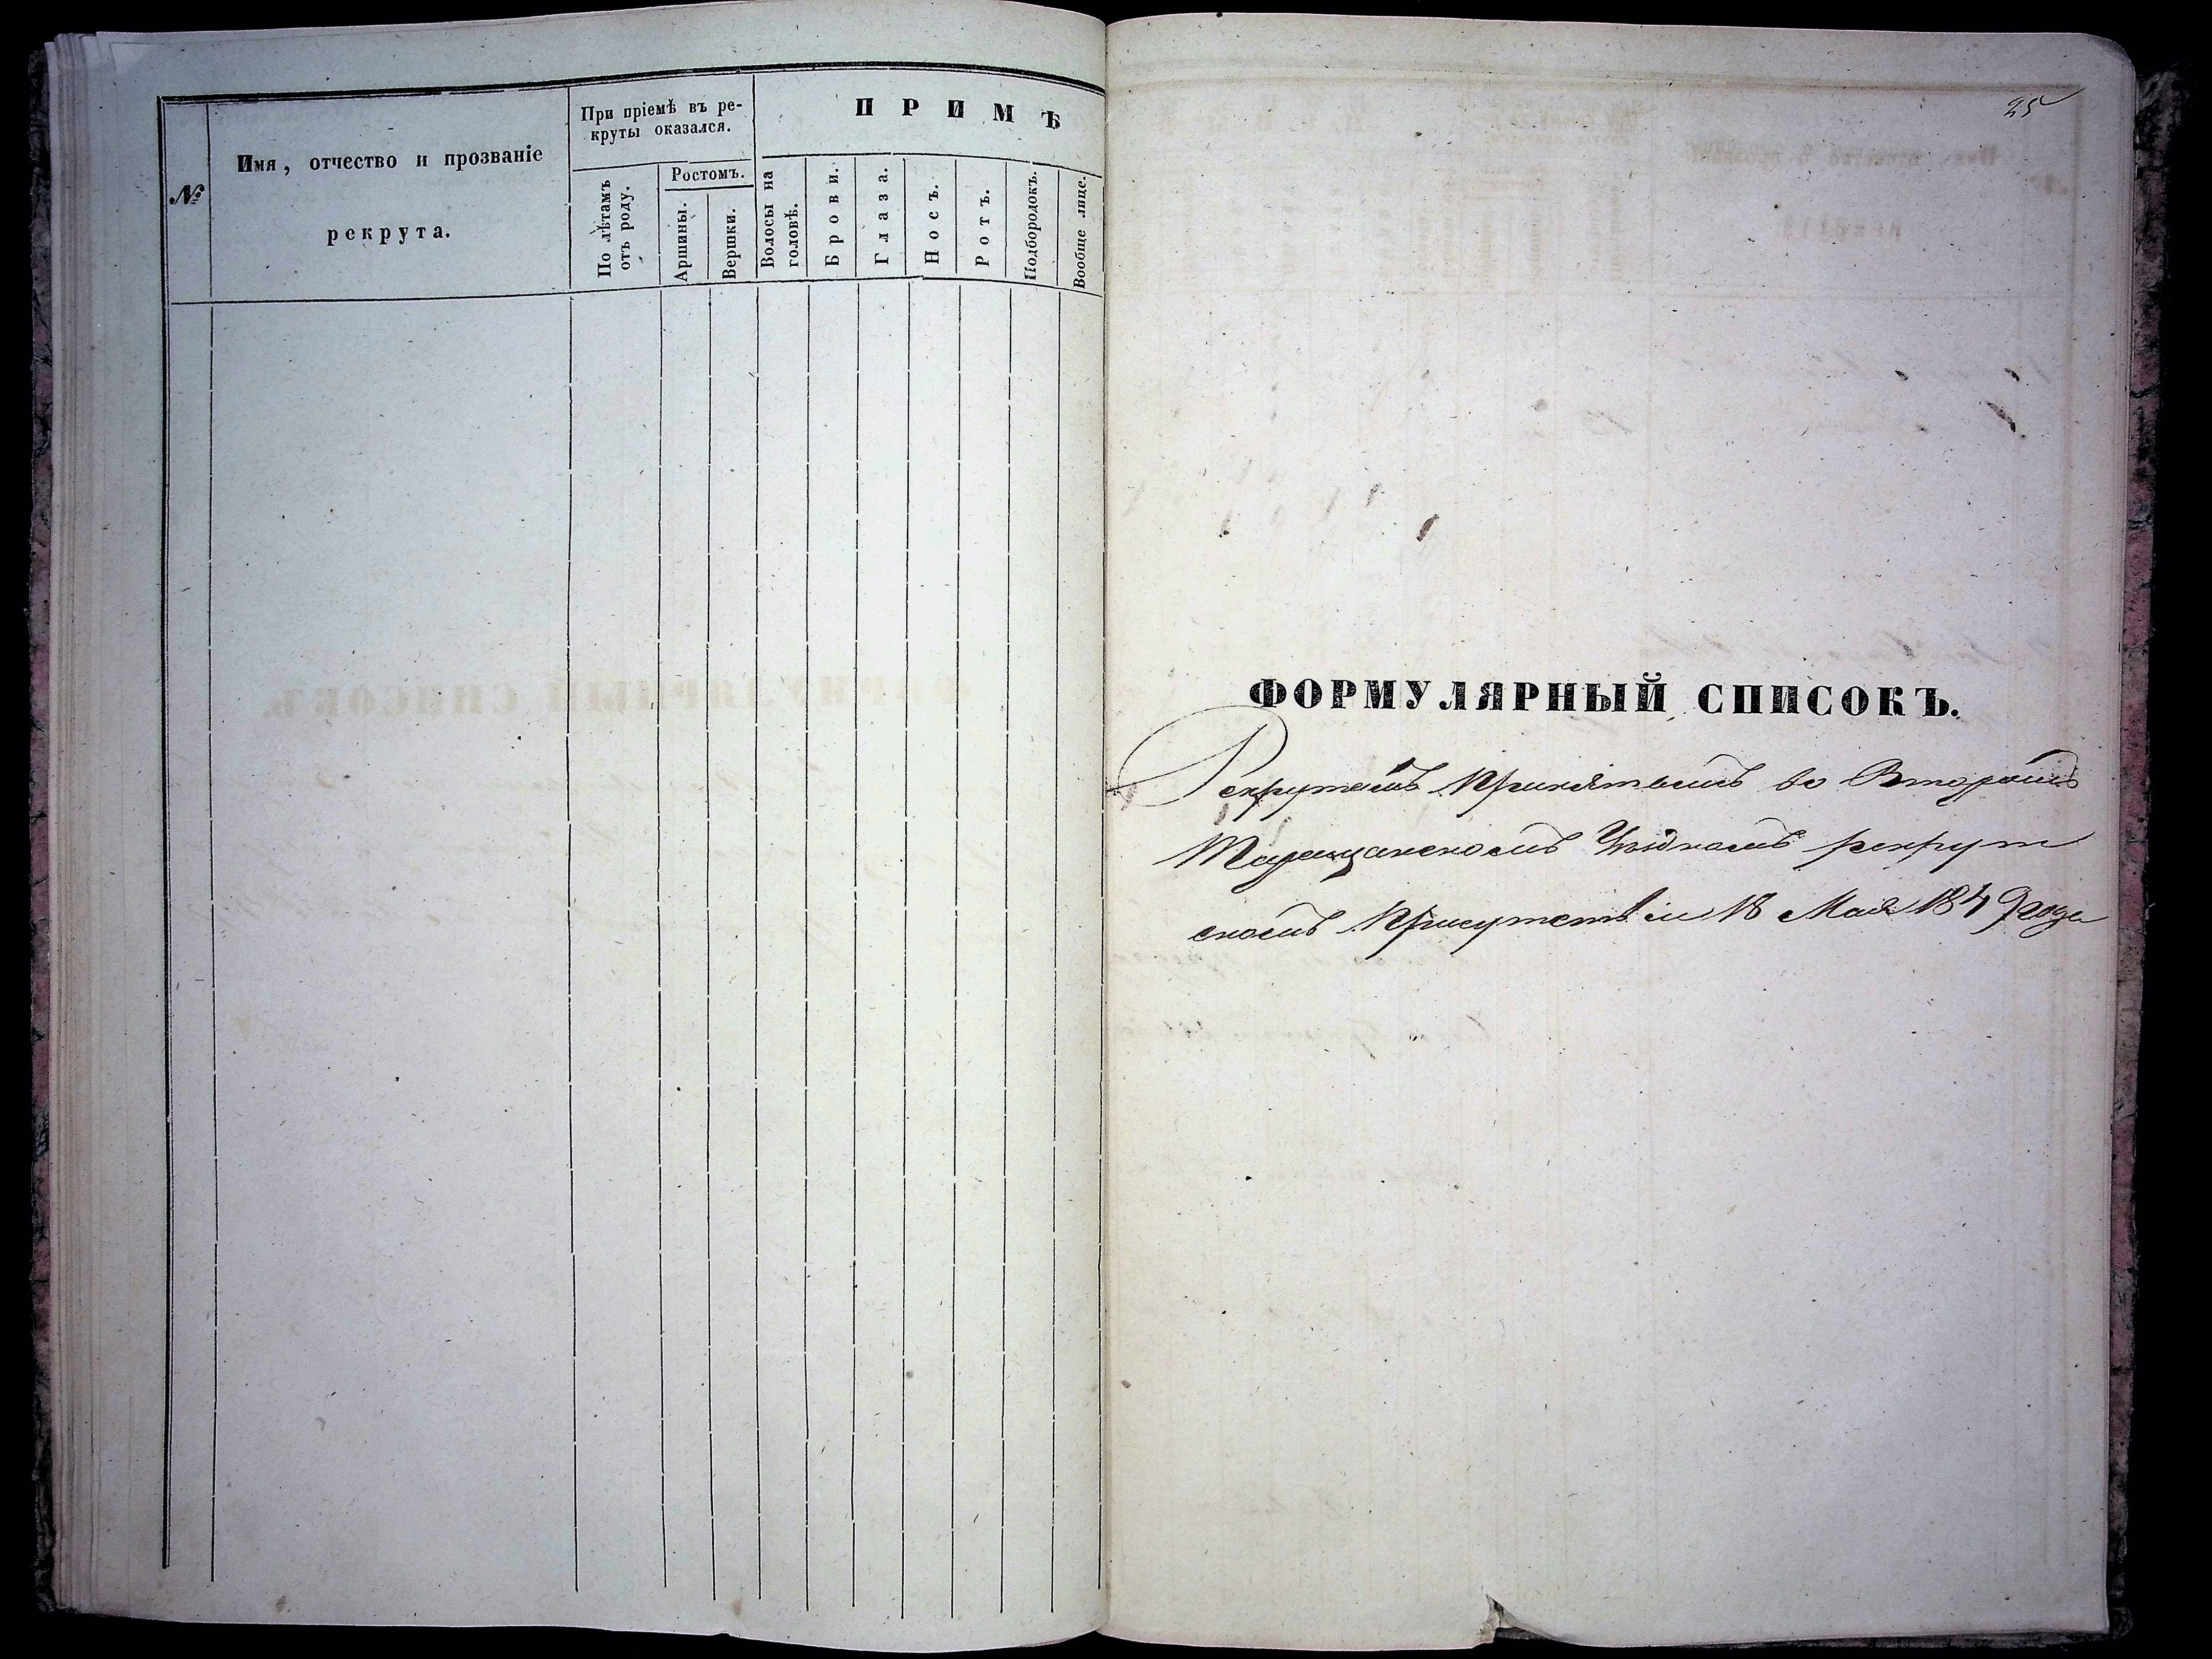 №
Имя, отчество и прозваніе
рекрута.
При пріемѣ въ ре-
круты оказался.
По лѣтамъ
отъ роду.
Ростомъ.
Аршины.
Вершки.
ПРИМѢ
Волосы на
головѣ.
Брови.
Глаза.
Носъ.
Ротъ.
Подбородокъ.
Вообще лице.
25
ФОРМУЛЯРНЫЙ СПИСОКЪ.
Рекрутамъ принятымъ во Второмъ
Таращанскомъ Уѣздномъ рекрут
скомъ Присутствіи 18 Мая 1849 года